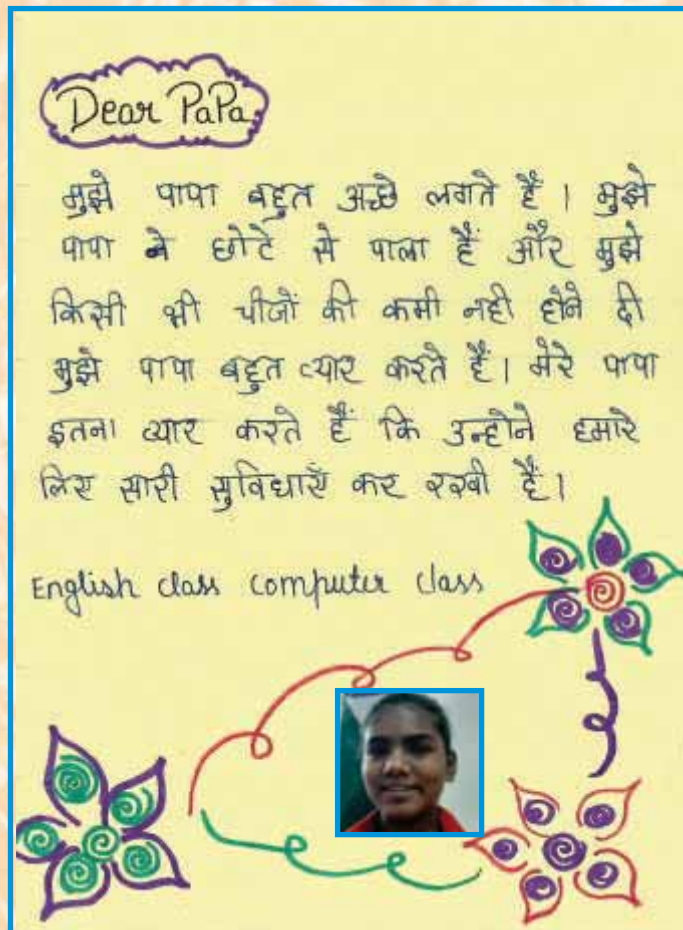 Dear PaPa
मुझे पापा बहुत अच्छे लगते हैं। मुझे
पापा ने छोटे से पाला हैं और मुझे
किसी भी चीजों की कमी नही होने दी
मुझे पापा बहुत प्यार करते हैं। मेरे पापा
इतना प्यार करते हैं कि उन्होने हमारे
लिए सारी सुविधाएँ कर रखी हैं।
English class computer class